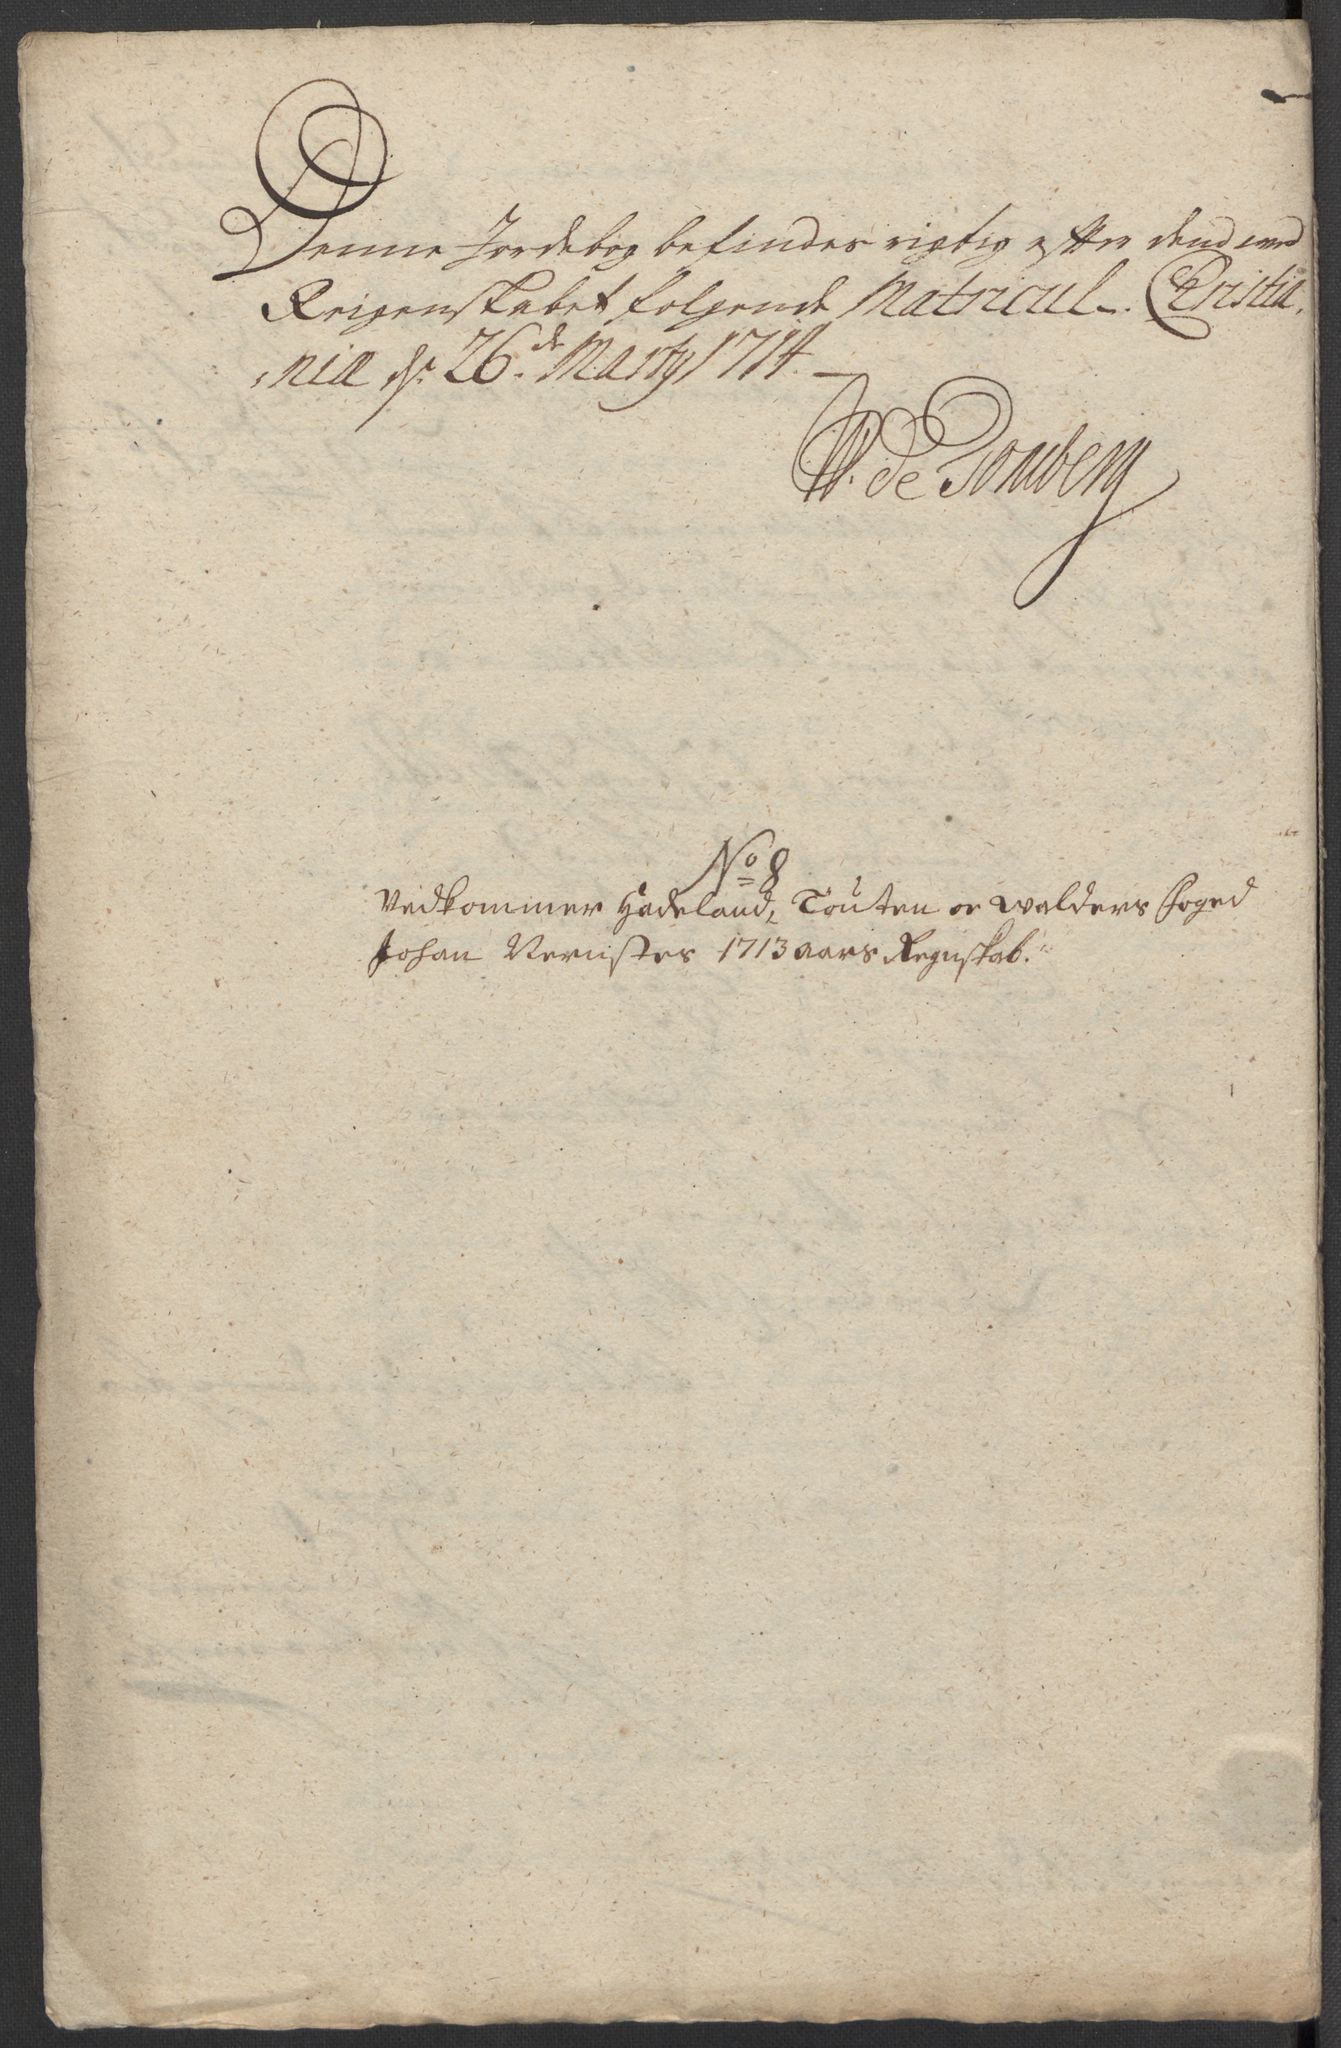 Denne Jordebog befindes rigtig efter dend med
Reigenskabet følgende Matricul. Christia¬
niæ dn: 26de. Marty 1714.
W. de Tonsberg
No 8
Vedkommer Hadeland, Touten oc Walders foged
Johan Vernistes 1713 aars Regnskab.